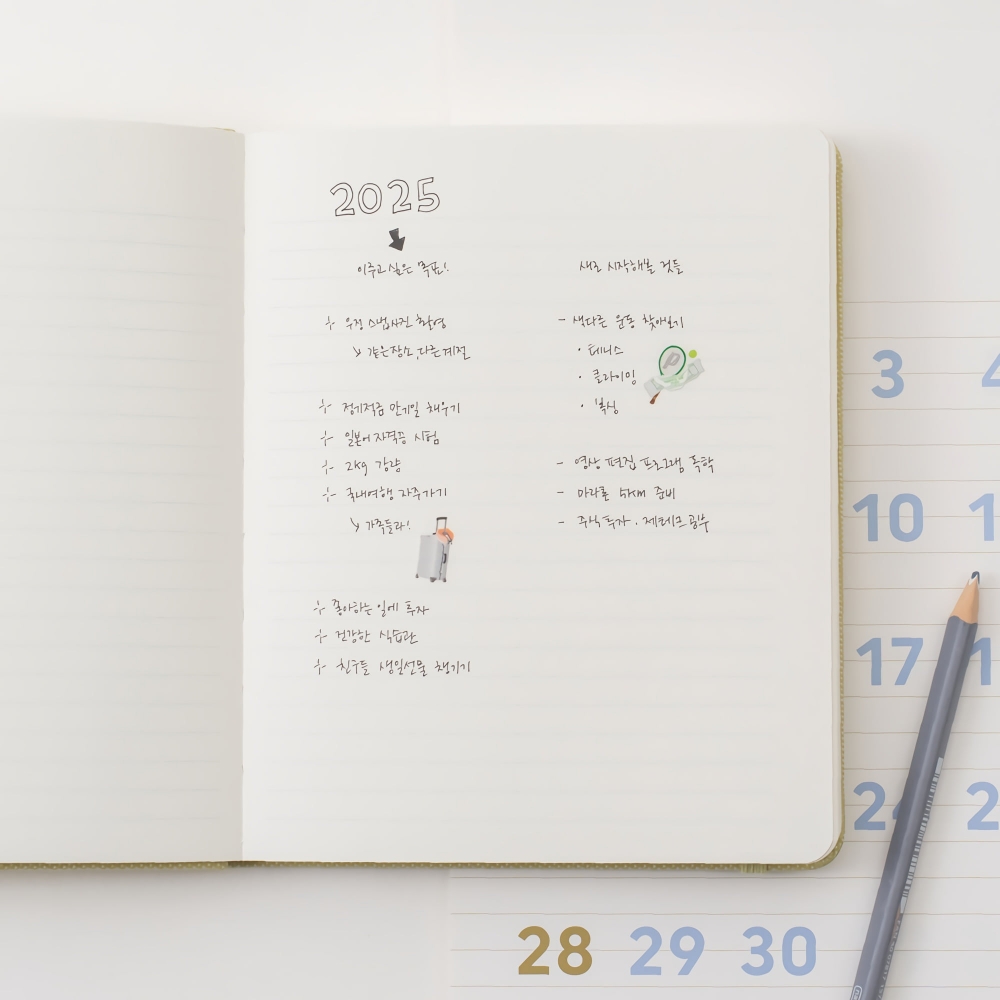 2025
이루고 싶은 목표!
우정 스냅사진 촬영
같은 장소, 다른 계절
정기적금 만기일 채우기
일본어 자격증 시험
2kg 감량
국내여행 자주가기
가족들과!
좋아하는 일에 투자
건강한 식습관
친구들 생일선물 챙기기
새로 시작해볼 것들
- 색다른 운동 찾아보기
· 테니스
· 클라이밍
· 복싱
- 영상 편집 프로그램 독학
- 마라톤 5km 준비
- 주식투자 · 재테크 공부
3 4
10
17
24
28 29 30